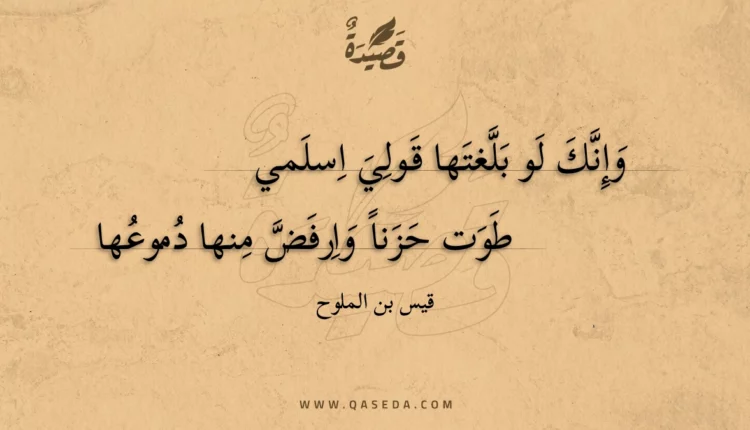 قَصِيدَةٌ
وَإِنَّكَ لَو بَلَّغتَها قَولِيَ اِسلَمي
طَوَت حَزَناً وَاِرفَضَّ مِنها دُموعُها
قيس بن الملوح
WWW.QASEDA.COM